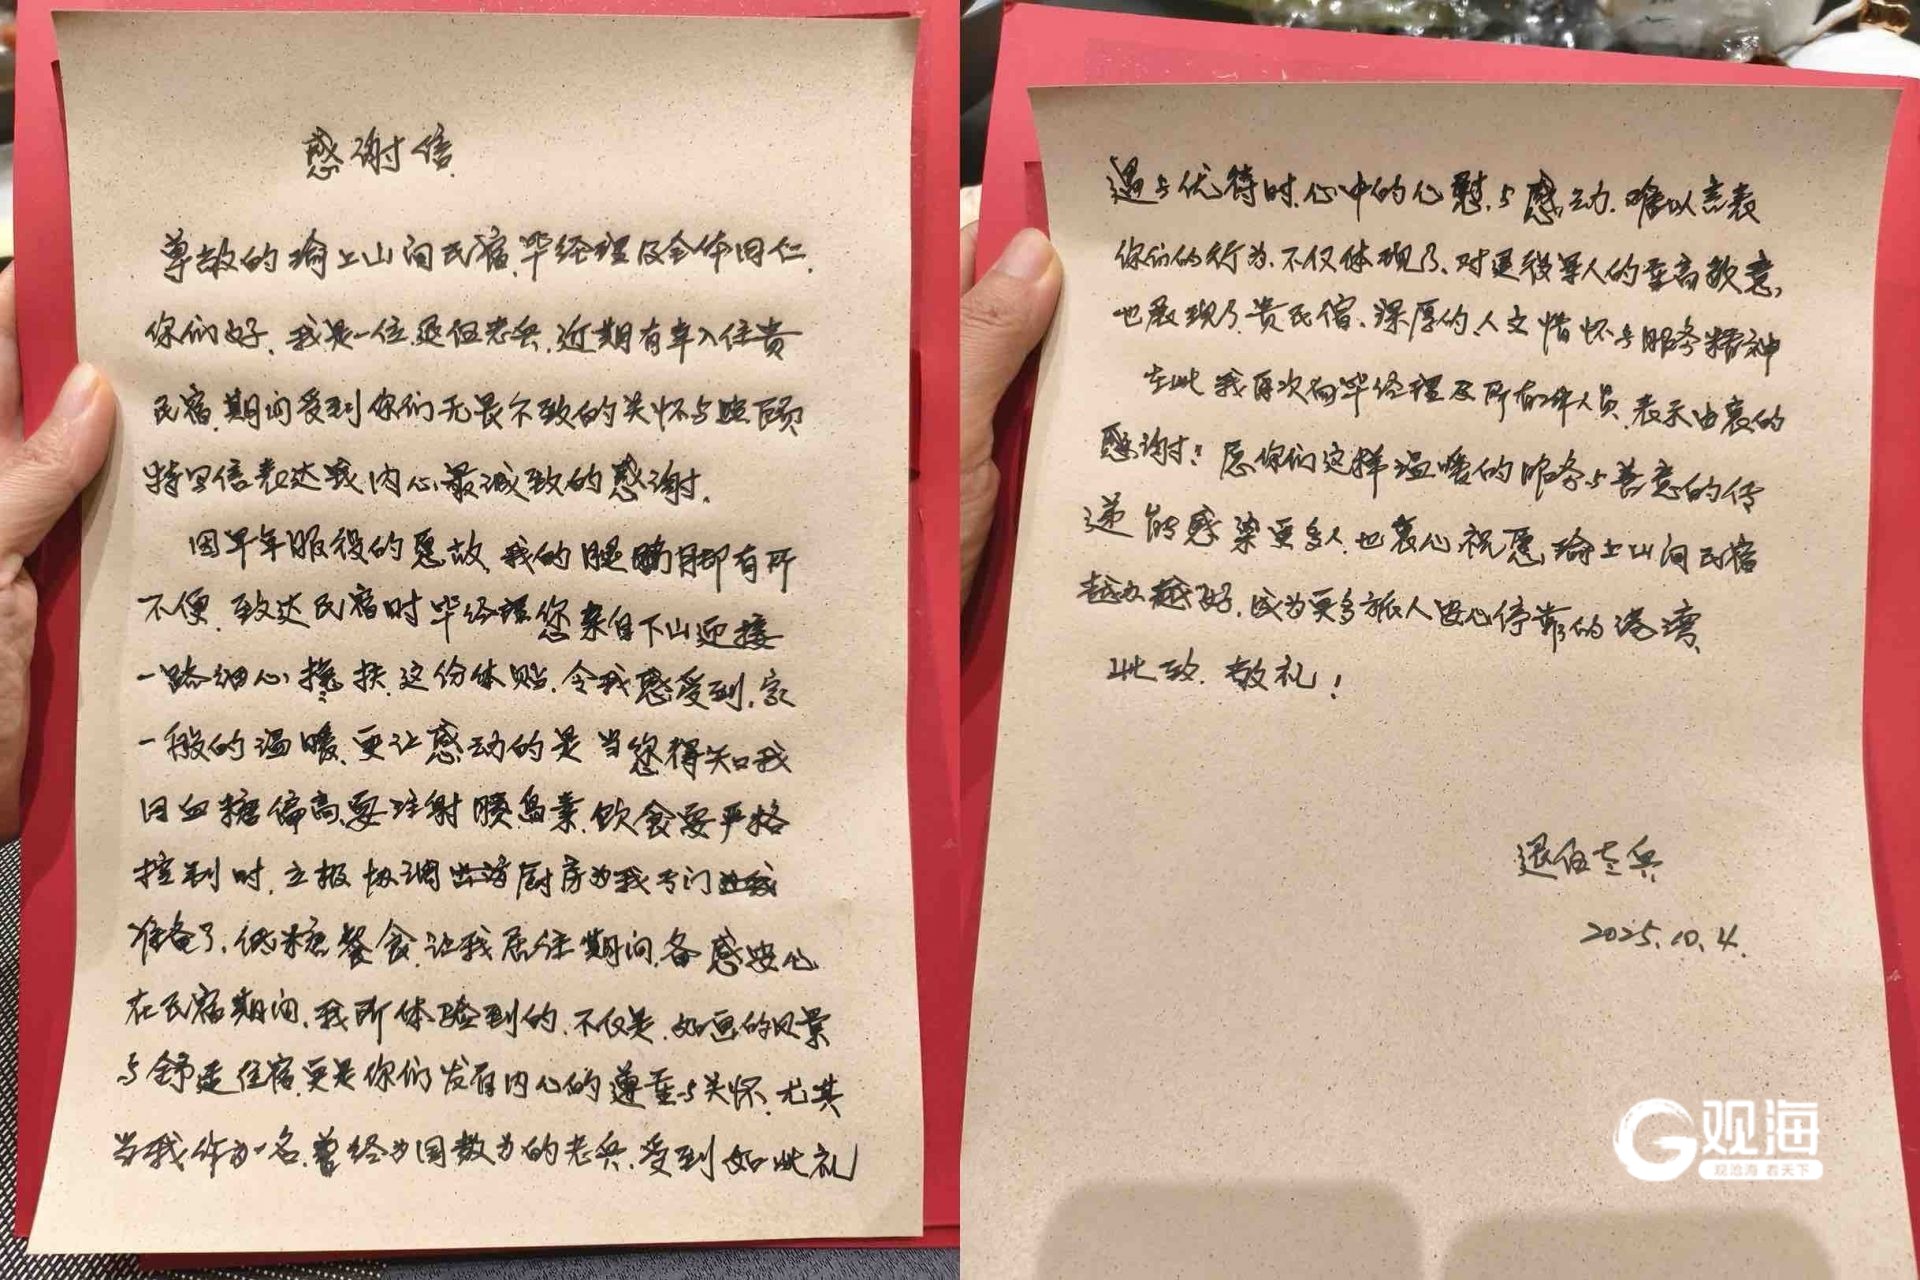 感谢信
尊敬的瑜上山间民宿,毕经理及全体同仁,
你们好,我是一位退伍老兵,近期有幸入住贵
民宿,期间受到你们无畏不致的关怀与照顾
特写信表达我内心最诚致的感谢,
因早年服役的愿故,我的腿脚有所
不便,致达民宿时毕经理您亲自下山迎接
一路细心搀扶,这份体贴,令我感受到,家
一般的温暖,更让感动的是当您得知我
因血糖偏高,要注射胰岛素,饮食要严格
控制时,立报协调出厨房为我专门
准备了,低糖餐食,让我居住期间,备感安心
在民宿期间,我所体验到的,不仅是,如画的风景
与舒适住宿,更是你们发自内心的尊重与关怀,尤其
当我作为一名,曾经为国效力的老兵,受到如此礼
遇与优待时,心中的心慰,与感动,难以言表
你们的行为,不仅体现了,对退役军人的至高敬意,
也展现了,贵民宿,深厚的,人文情怀与服务精神
在此我再次向毕经理及所有工作人员,表示由衷的
感谢!愿你们这样温暖的服务与善意的传
递能感染更多人,也衷心祝愿,瑜上山间民宿
越办越好,成为更多旅人安心停靠的港湾,
此致,敬礼!
退伍老兵
2025.10.4.
观海
观沧海 看天下